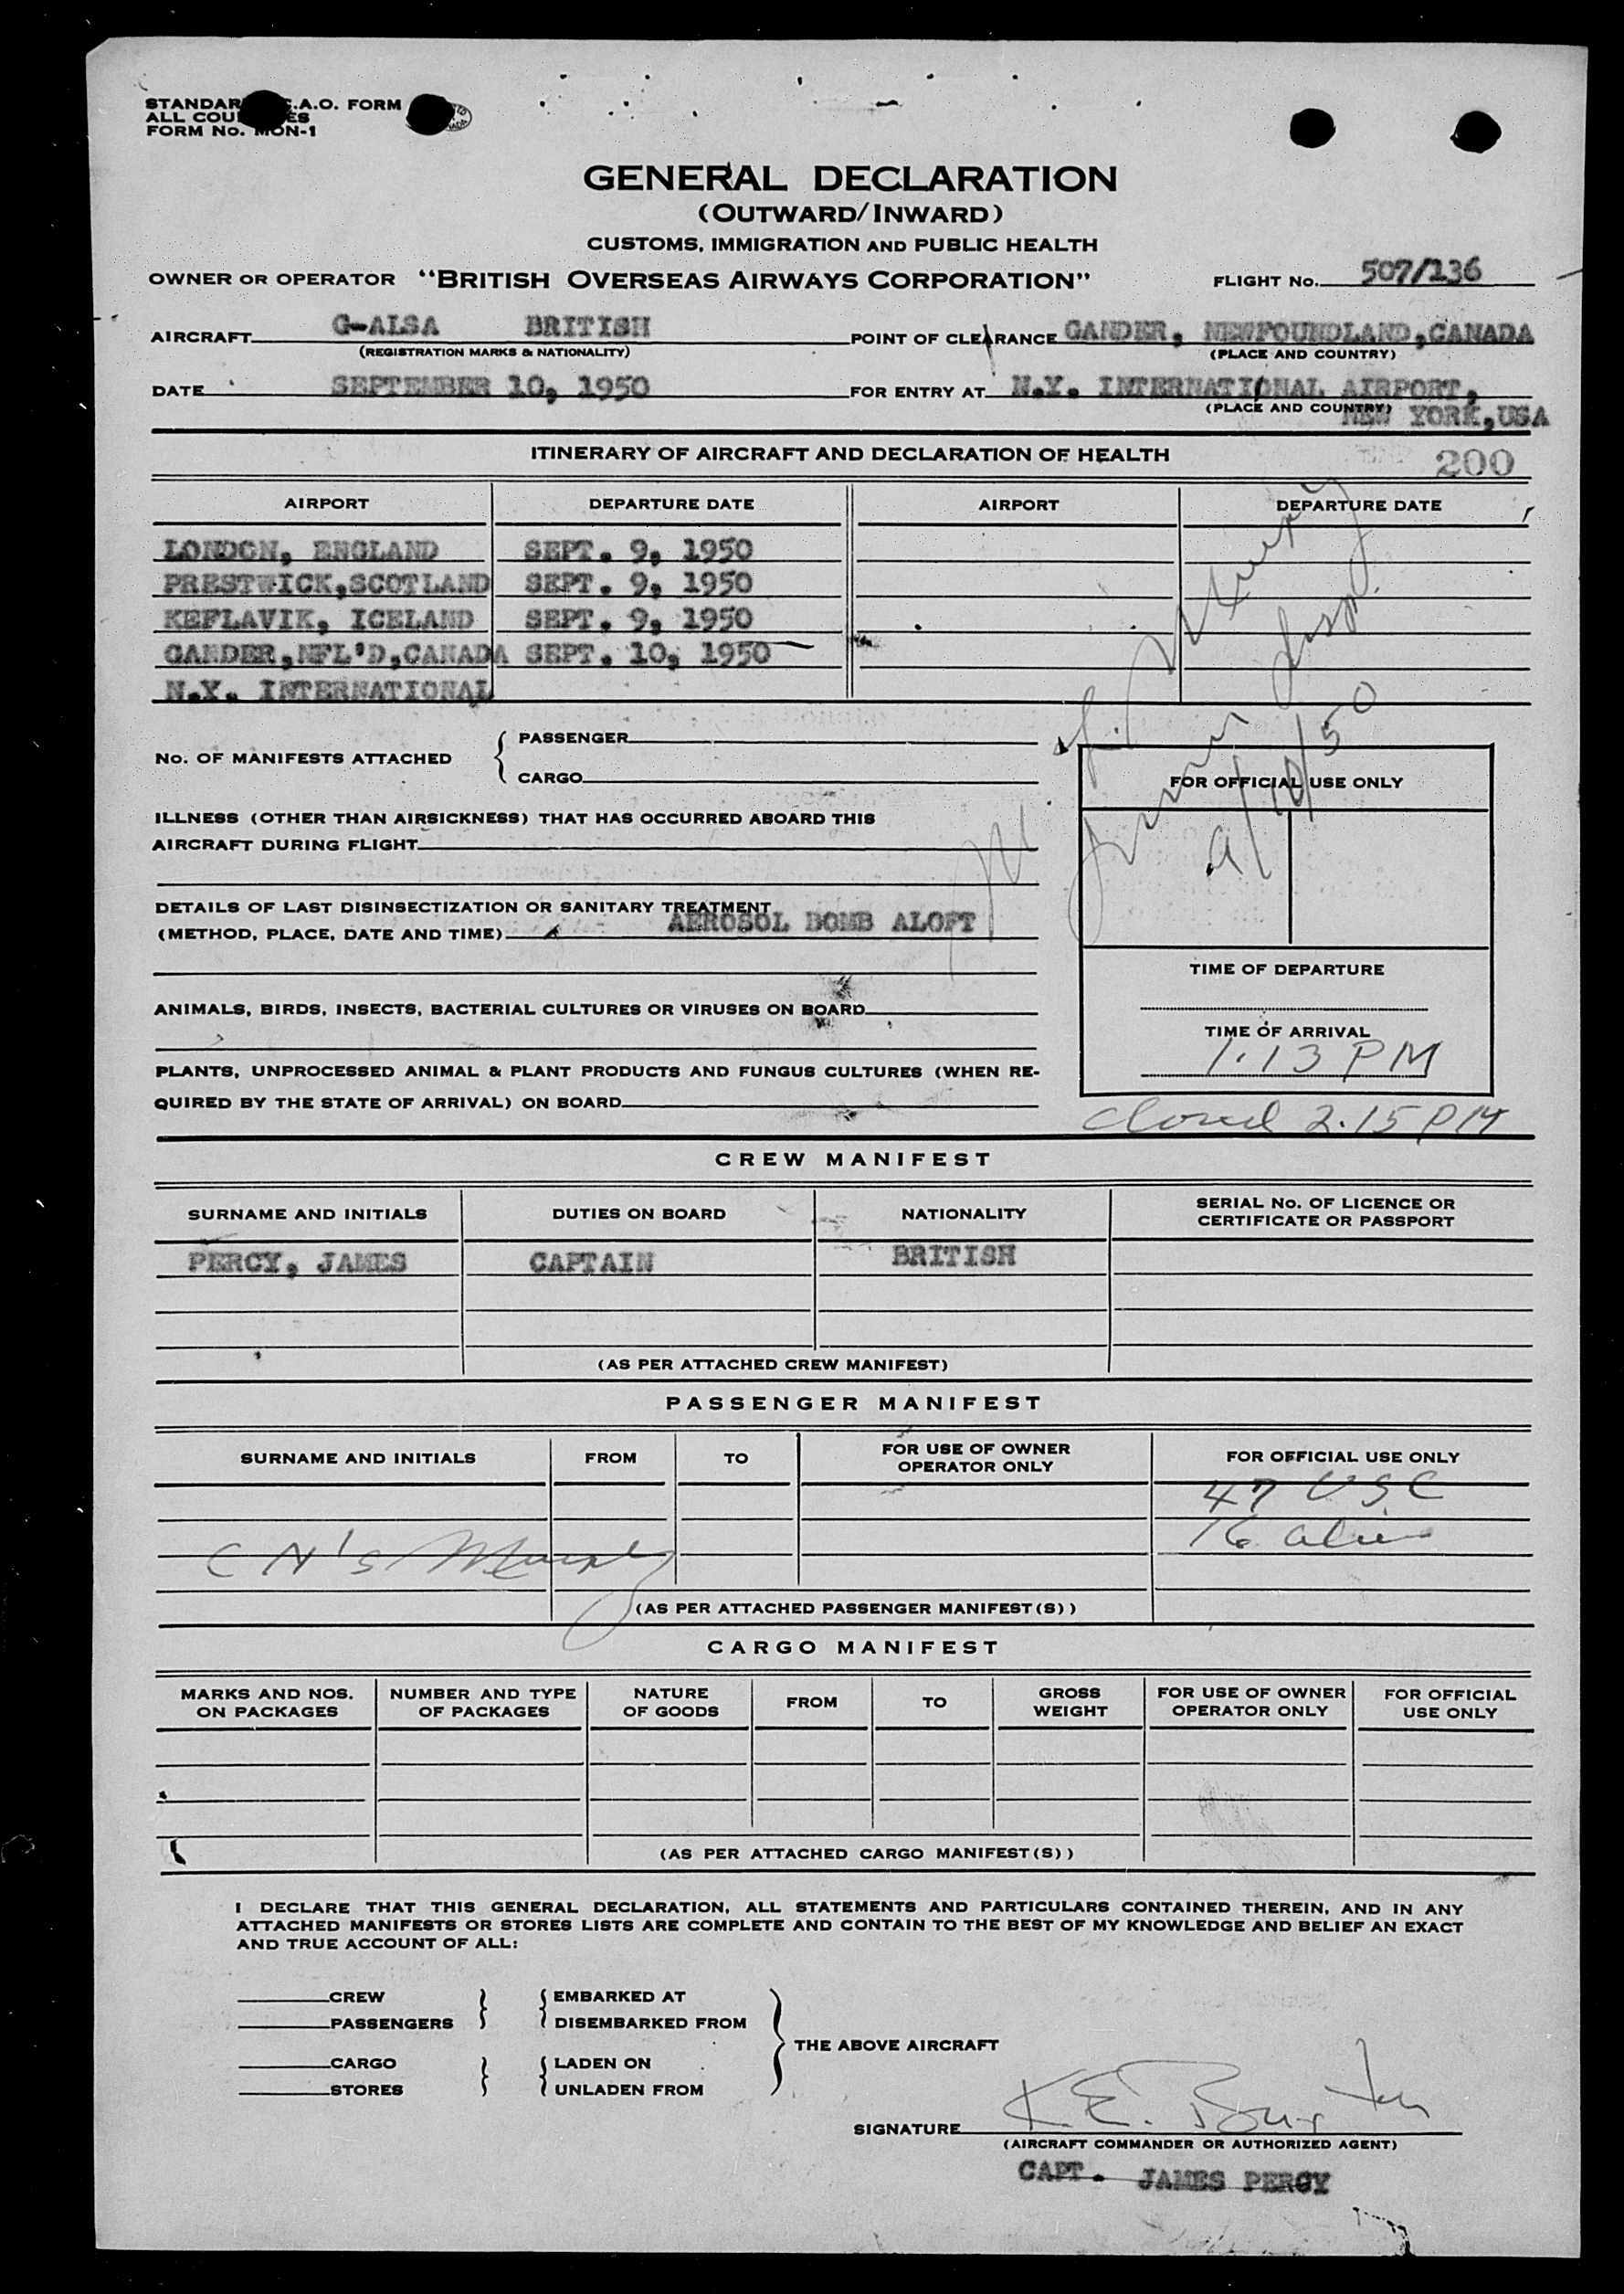 STANDARD I.C.A.O. FORM
ALL COUNTRIES
FORM No. MON-1
GENERAL DECLARATION
(OUTWARD/INWARD)
CUSTOMS, IMMIGRATION AND PUBLIC HEALTH
OWNER OR OPERATOR "BRITISH OVERSEAS AIRWAYS CORPORATION" FLIGHT No. 507/136
AIRCRAFT G-ALSA BRITISH POINT OF CLEARANCE GANDER, NEWFOUNDLAND,CANADA
(REGISTRATION MARKS & NATIONALITY) (PLACE AND COUNTRY)
DATE SEPTEMBER 10, 1950 FOR ENTRY AT N.Y. INTERNATIONAL AIRPORT,
(PLACE AND COUNTRY) NEW YORK,USA
ITINERARY OF AIRCRAFT AND DECLARATION OF HEALTH 200
AIRPORT DEPARTURE DATE AIRPORT DEPARTURE DATE
LONDON, ENGLAND SEPT. 9, 1950
PRESTWICK,SCOTLAND SEPT. 9, 1950
KEFLAVIK, ICELAND SEPT. 9, 1950
GANDER,NFL'D,CANADA SEPT. 10, 1950
N.Y. INTERNATIONAL
No. OF MANIFESTS ATTACHED { PASSENGER
CARGO
9/10/50
FOR OFFICIAL USE ONLY
ILLNESS (OTHER THAN AIRSICKNESS) THAT HAS OCCURRED ABOARD THIS
AIRCRAFT DURING FLIGHT
DETAILS OF LAST DISINSECTIZATION OR SANITARY TREATMENT
(METHOD, PLACE, DATE AND TIME) AEROSOL BOMB ALOFT
TIME OF DEPARTURE
ANIMALS, BIRDS, INSECTS, BACTERIAL CULTURES OR VIRUSES ON BOARD
TIME OF ARRIVAL
1.13 PM
PLANTS, UNPROCESSED ANIMAL & PLANT PRODUCTS AND FUNGUS CULTURES (WHEN RE-
QUIRED BY THE STATE OF ARRIVAL) ON BOARD
Closed 2.15 PM
CREW MANIFEST
SURNAME AND INITIALS DUTIES ON BOARD NATIONALITY SERIAL No. OF LICENCE OR
CERTIFICATE OR PASSPORT
PERCY, JAMES CAPTAIN BRITISH
(AS PER ATTACHED CREW MANIFEST)
PASSENGER MANIFEST
SURNAME AND INITIALS FROM TO FOR USE OF OWNER
OPERATOR ONLY FOR OFFICIAL USE ONLY
47 USC
16 alien
CN's Murphy
(AS PER ATTACHED PASSENGER MANIFEST(S))
CARGO MANIFEST
MARKS AND NOS.
ON PACKAGES NUMBER AND TYPE
OF PACKAGES NATURE
OF GOODS FROM TO GROSS
WEIGHT FOR USE OF OWNER
OPERATOR ONLY FOR OFFICIAL
USE ONLY
(AS PER ATTACHED CARGO MANIFEST(S))
I DECLARE THAT THIS GENERAL DECLARATION, ALL STATEMENTS AND PARTICULARS CONTAINED THEREIN, AND IN ANY
ATTACHED MANIFESTS OR STORES LISTS ARE COMPLETE AND CONTAIN TO THE BEST OF MY KNOWLEDGE AND BELIEF AN EXACT
AND TRUE ACCOUNT OF ALL:
CREW } { EMBARKED AT
PASSENGERS DISEMBARKED FROM
} THE ABOVE AIRCRAFT
CARGO } { LADEN ON
STORES UNLADEN FROM
SIGNATURE K.E. Burton
(AIRCRAFT COMMANDER OR AUTHORIZED AGENT)
CAPT. JAMES PERCY